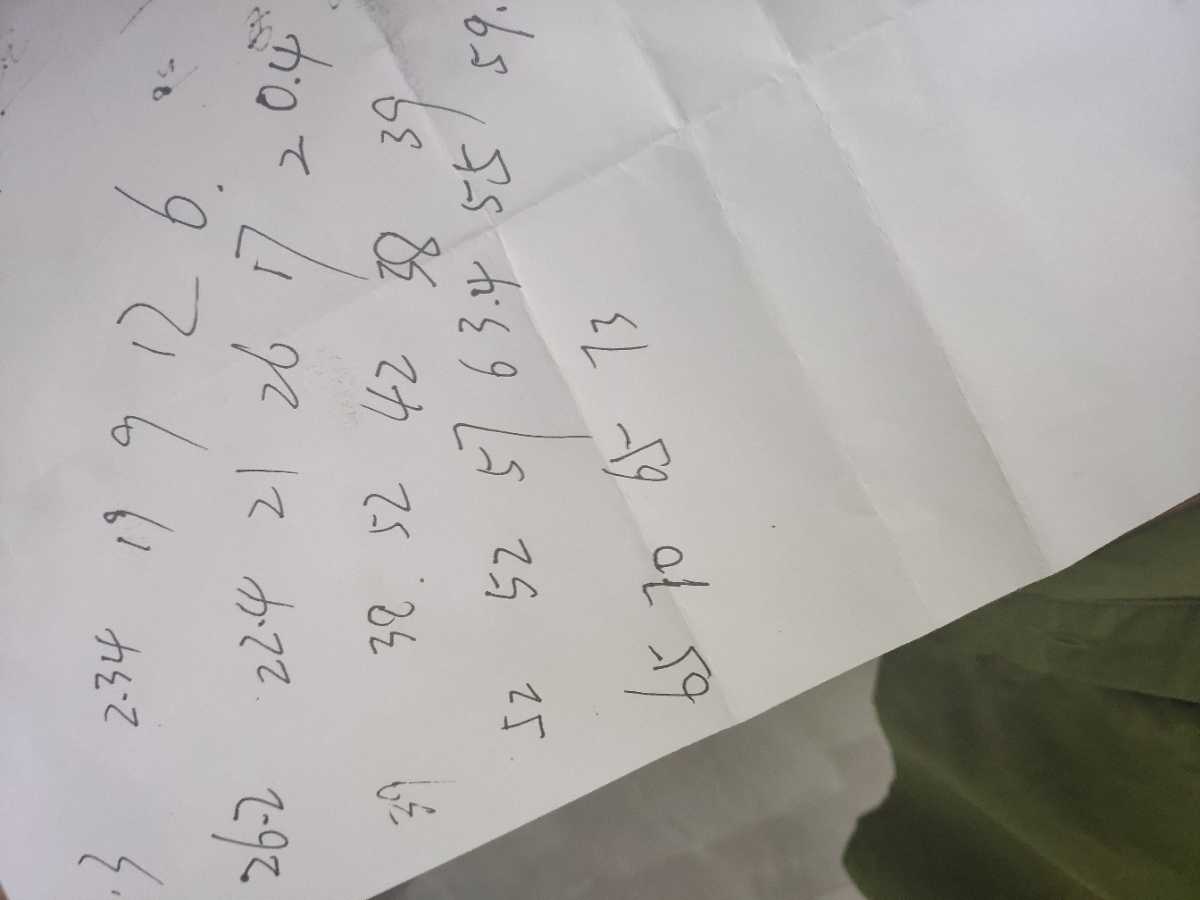 .3 2.34 19 9 12 6.
26.2 22.4 21 26 17 20.4
39 38. 52 42 38 39
52 52 57 63.4 55 59.
65 70 65 73